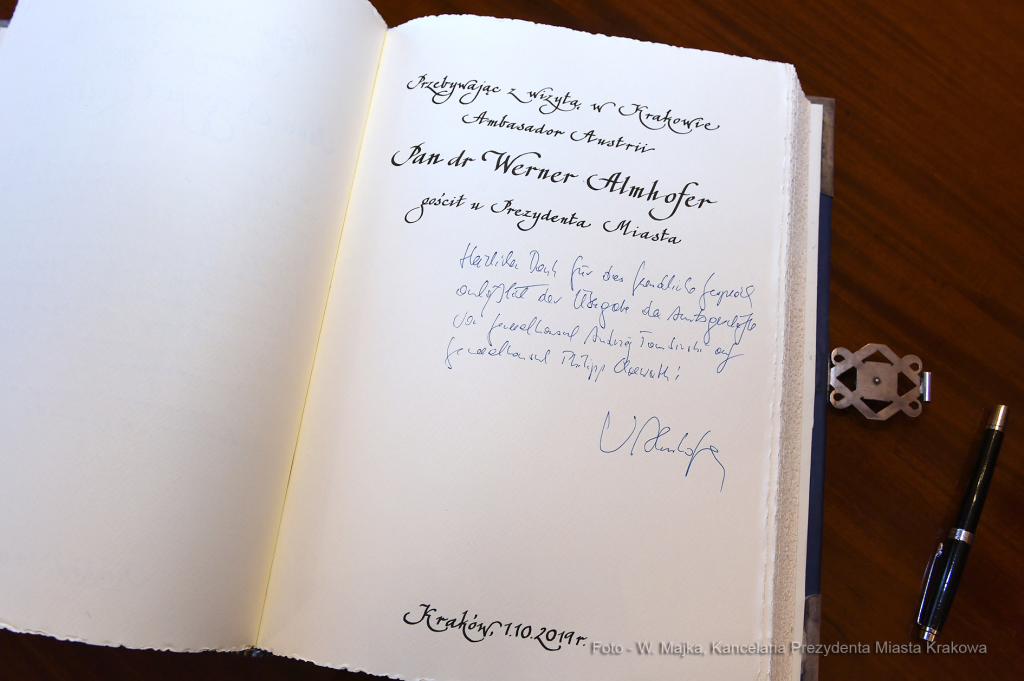 Przebywając z wizytą w Krakowie
Ambasador Austrii
Pan dr Werner Almhofer
gościł u Prezydenta Miasta
Herzlichen Dank für das freundliche Gespräch
anläßlich der Übergabe der Amtsgeschäfte
von Generalkonsul Andrzej Tombiński auf
Generalkonsul Philipp
W Almhofer
Kraków, 1.10.2019 r.
Foto - W. Majka, Kancelaria Prezydenta Miasta Krakowa